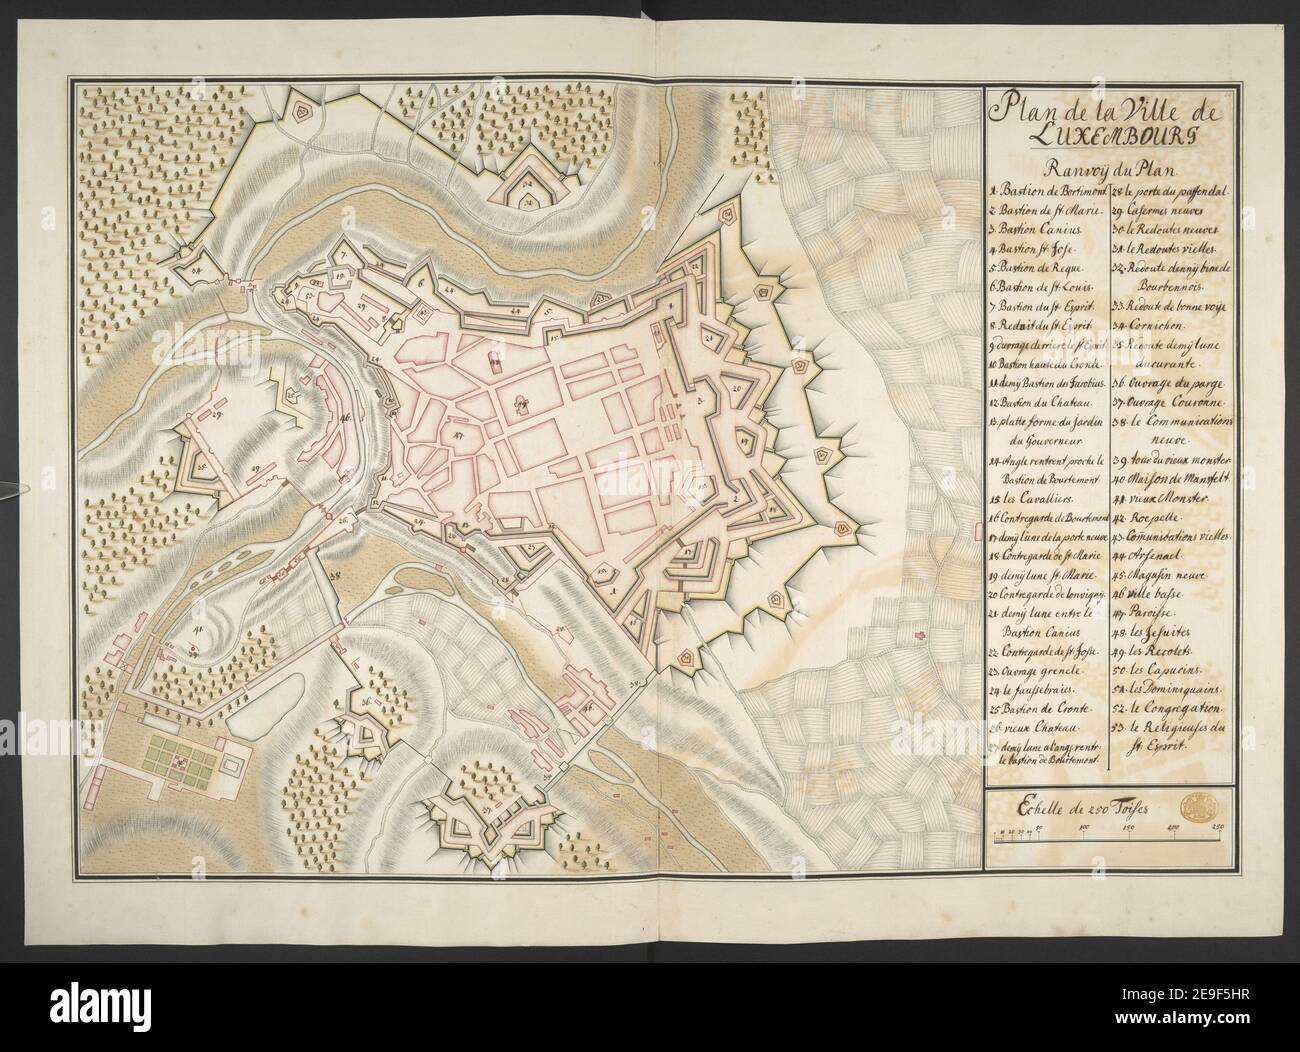 Plan de la Ville de
LUXEMBOURG
Ranvoÿ du Plan
1 Bastion de Bortimont
2 Bastion de St Marie.
3 Bastion Canius
4 Bastion St Jose.
5 Bastion de Reque
6 Bastion de St Louis.
7 Bastion du St Esprit.
8 Reduit du St Esprit
9 Ouvrage derriere le St Esprit
10 Bastion haute du Gronde
11 demÿ Bastion des Jacobius.
12 Bastion du Chateau.
13 platte forme du Jardin
du Gouverneur
14 Angle rentrent proche le
Bastion de Bourtemont.
15 les Cavalliers.
16 Contregarde de Bourtemont
17 demÿ lune de la porte neuve
18 Contregarde de St Marie
19 demÿ lune St Marie
20 Contregarde de Lonvigny.
21 demÿ lune entre le
Bastion Canius
22 Contregarde de St Josse.
23 Ouvrage grenele
24 le faussebraies.
25 Bastion de Gronte
26 vieux Chateau.
27 demÿ lune a l'angl. rentr.
le bastion de Bourtemont.
28 le porte du paffendal.
29 Casermes neuves
30 le Redoutes neuves
31 le Redoutes vielles.
32 Redoute
Bourbennois.
33 Redoute de bonne voÿe
34 Cornichon.
35 Redoute demÿ lune
du curante.
36 Ouvrage du parge
37 Ouvrage Couronne
38 le Communications
neuve.
39 tour du vieux monster
40 Maison de Mansfelt.
41 vieux Monster
42 Roepelle.
43 Communications vielles.
44 Arsenael.
45 Magasin neuve.
46 Ville basse.
47 Paroisse.
48 les Jesuites
49 les Recolets.
50 les Capucins.
51 les Dominiquains.
52 le Congregation.
53 le Religieuses du
St Esprit.
Echelle de 250 Toises
10 20 30 40 50 100 150 200 250
alamy
Image ID: 2E9F5HR
www.alamy.com